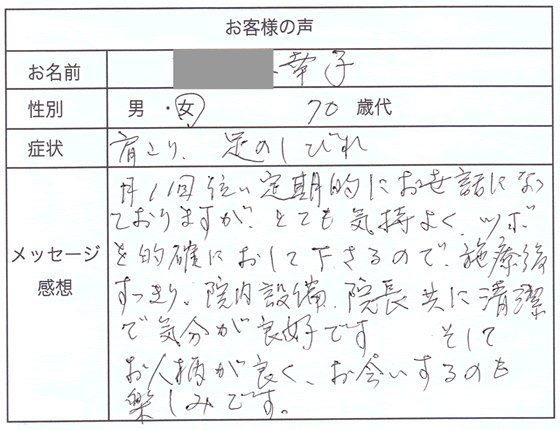 お客様の声
お名前 幸子
性別 男・女 70 歳代
症状 肩こり、足のしびれ
メッセージ
感想
月1回位い定期的にお世話になっ
ておりますが、とても気持よく、ツボ
を的確におして下さるので、施療後
すっきり。院内設備、院長共に清潔
で気分が良好です そして
お人柄が良く、お会いするのも
楽しみです。